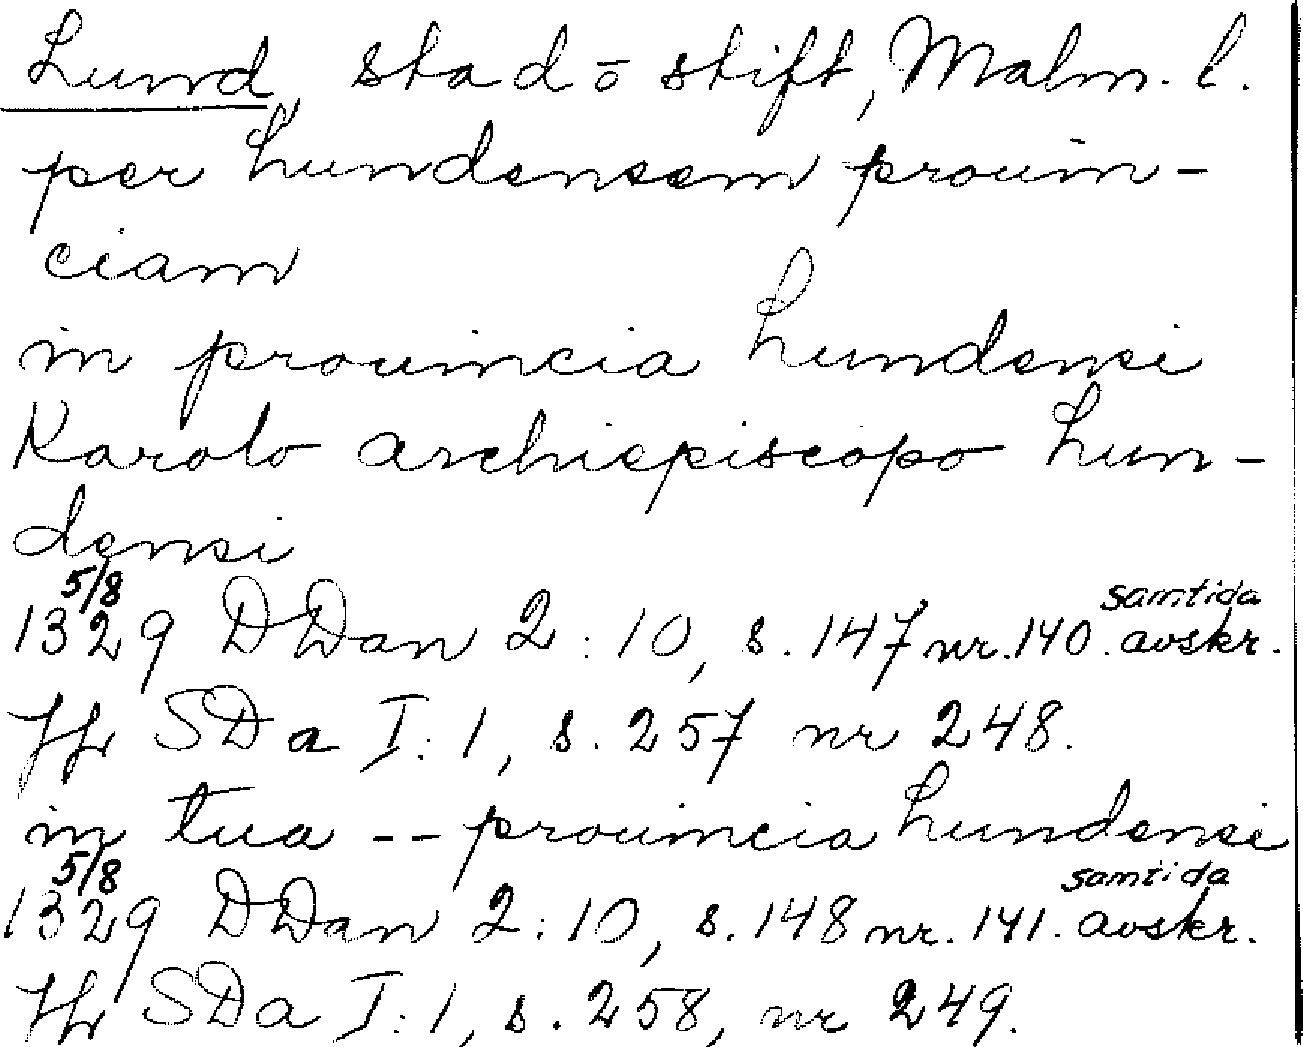 Lund, stad o stift, Malm. l.
per Lundensem prouin-
ciam
in prouincia Lundensi
Karolo archiepiscopo Lun-
densi
5/8 samtida
1329 DDan 2:10, s. 147 nr. 140. avskr.
Jfr SDa I:1, s. 257 nr 248.
in tua -- prouincia Lundensi
5/8 samtida
1329 DDan 2:10, s. 148 nr. 141. avskr.
Jfr SDa I:1, s. 258, nr 249.